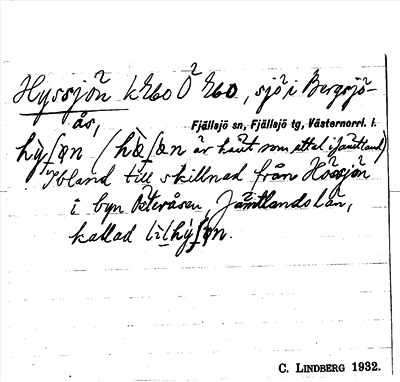 Hyssjön k Z60 Ö Z60, sjö i Bergsjö-
ås,
Fjällsjö sn, Fjällsjö tg, Västernorrl. l.
hỳʃơn (hœ̀ʃœn är hört som uttal i Jämtland)
Ibland till skillnad från Hössjön
i byn Österåsen, Jämtlands län,
kallad lilhỳʃơn.
C. LINDBERG 1932.